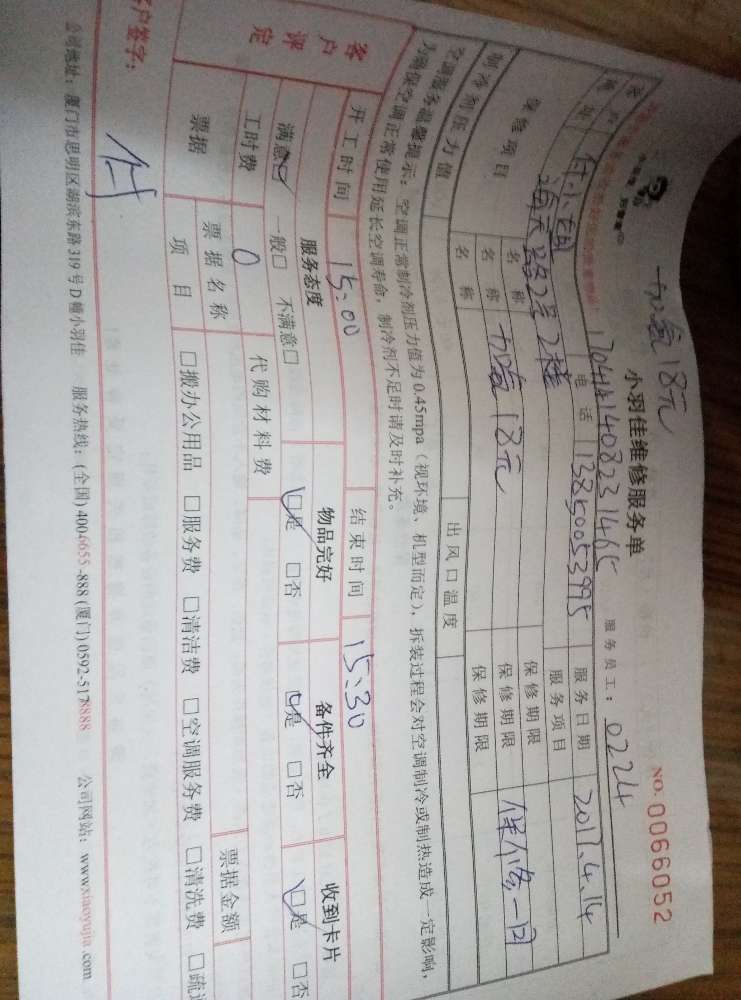 加氨18元
小羽佳维修服务单
NO. 0066052
服务员工：0224
电话 13850053995
服务日期 2017.4.14
海天路2号2楼
服务项目
保修项目
名称
保修期限
名称 加氨18元
保修期限
名称
保修期限
制冷剂压力值
出风口温度
空调服务温馨提示：空调正常制冷剂压力值为0.45mpa（视环境、机型而定），拆装过程会对空调制冷或制热造成一定影响，
为确保空调正常使用延长空调寿命，制冷剂不足时请及时补充。
开工时间 15:00
结束时间 15:30
客户评定
服务态度
物品完好
备件齐全
收到卡片
满意□ 一般□ 不满意□
□是 □否
□是 □否
□是 □否
工时费 0
代购材料费
票据
票据名称
票据金额
项目
□搬办公用品 □服务费 □清洁费 □空调服务费 □清洗费
户签字：
公司地址：厦门市思明区湖滨东路319号D幢小羽佳 服务热线：(全国)4006655-888 (厦门)0592-5178888 公司网站：www.xiaoyujia.com